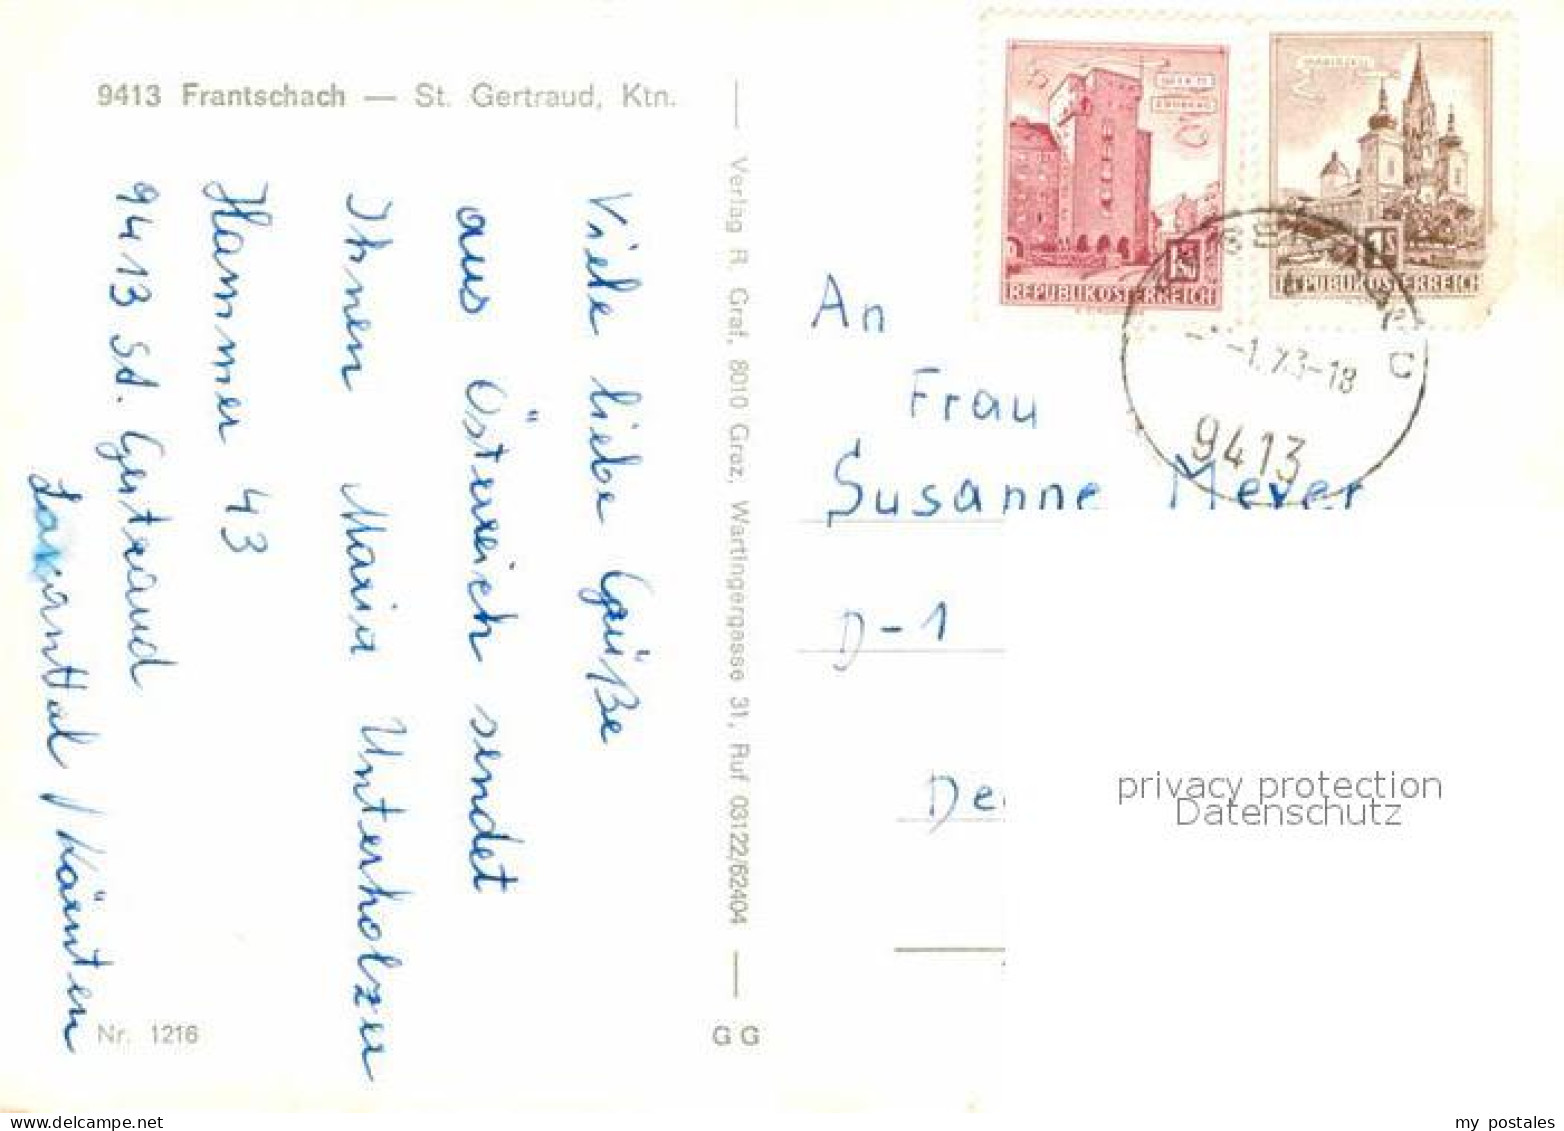 9413 Frantschach — St. Gertraud, Ktn.
Viele liebe Grüße
aus Österreich sendet
Ihnen Maria Unterholzer
Hammer 43
9413 St. Gertraud
Lavanttal / Kärnten
Nr. 1216
Verlag R. Graf, 8010 Graz, Wartingergasse 31, Ruf 03122/62404
G G
REPUBLIK ÖSTERREICH
MARIAZELL
1S
REPUBLIK ÖSTERREICH
73-18
9413
An
Frau
Susanne Meyer
D-1
privacy protection
Datenschutz
my postales